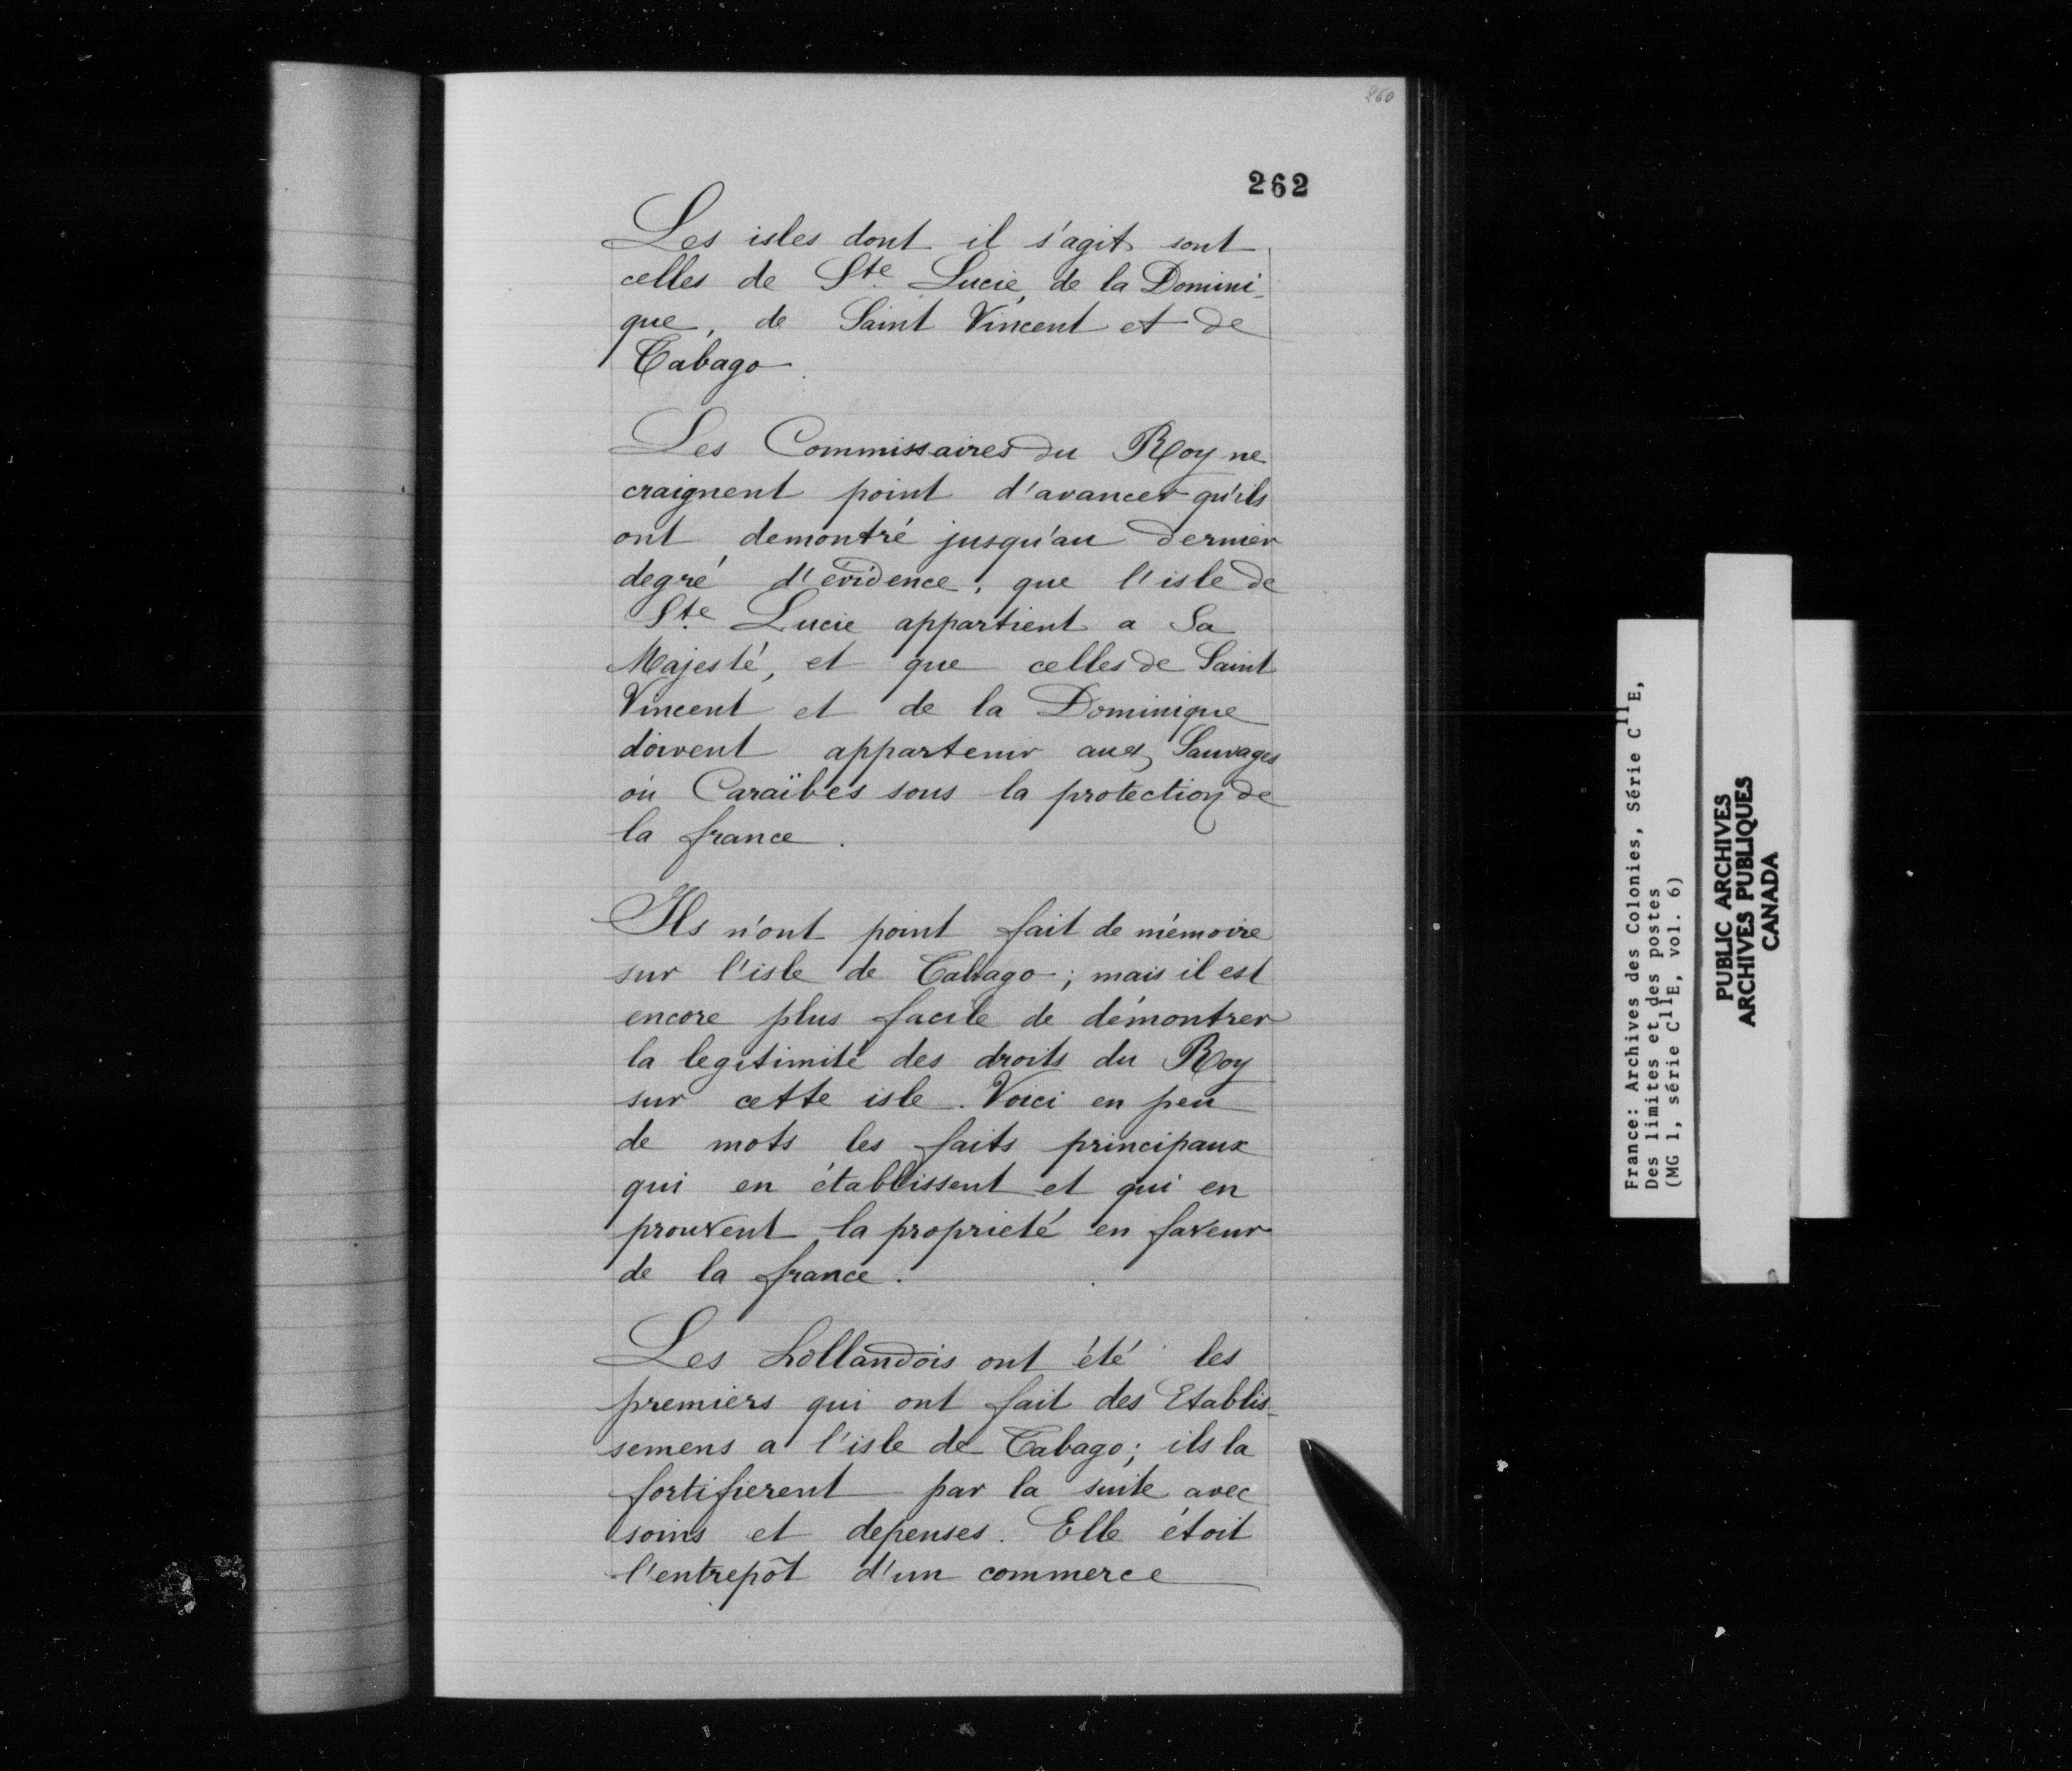 260
262
Les isles dont il s'agit sont
celles de Ste Lucie, de la Domini-
que, de Saint Vincent et de
Tabago.
Les Commissaires du Roy ne
craignent point d'avancer qu'ils
ont demontré jusqu'au dernier
degré d'évidence, que l'isle de
Ste Lucie appartient a Sa
Majesté, et que celles de Saint
Vincent et de la Dominique
doivent appartenir aux Sauvages
où Caraïbes sous la protection de
la france.
Ils n'ont point fait de mémoire
sur l'isle de Tabago; mais il est
encore plus facile de démontrer
la legitimité des droits du Roy
sur cette isle. Voici en peu
de mots les faits principaux
qui en établissent et qui en
prouvent la proprieté en faveur
de la france.
Les hollandois ont été les
premiers qui ont fait des Etablis-
semens a l'isle de Tabago; ils la
fortifierent par la suite avec
soins et depenses. Elle étoit
l'entrepôt d'un commerce
France: Archives des Colonies, Série C11E,
Des limites et des postes
(MG 1, série C11E, vol. 6)
PUBLIC ARCHIVES
ARCHIVES PUBLIQUES
CANADA